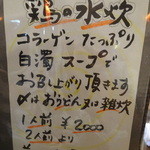 鶏の水炊
コラーゲンたっぷり
白濁スープで
お召し上がり頂きます
〆はおうどん又は雑炊
1人前 ¥2000
2人前より